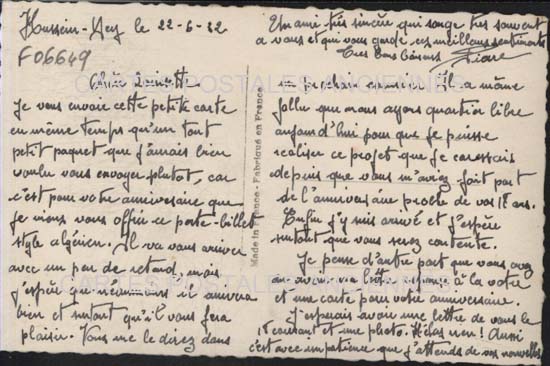 Hussein-Dey le 22-6-32
F06649
Chère
Je vous envoie cette petite carte
en même temps qu'un tout
petit paquet que j'aurais bien
voulu vous envoyer plutot, car
c'est pour votre anniversaire que
je viens vous offrir ce porte-billet
style algérien. Il va vous arriver
avec un peu de retard, mais
j'espère que néanmoins il arrivera
bien et surtout qu'il vous fera
plaisir. Vous me le direz dans
Made in France - Fabriqué en France
un prochain courrier. Il a même
fallu que nous ayons quartier libre
aujourd'hui pour que je puisse
réaliser ce projet que je caressais
depuis que vous m'avez fait part
de l'anniversaire proche de vos 18 ans.
Enfin j'y suis arrivé et j'espère
surtout que vous serez contente.
Je pense d'autre part que vous avez
du avoir ma lettre réponse à la votre
et une carte pour votre anniversaire.
J'esperais avoir une lettre de vous le
courant et une photo. Hélas non! Aussi
c'est avec impatience que j'attends de vos nouvelles
Un ami très sincère qui songe très souvent
a vous et qui vous garde ses meilleurs sentiments
Tres bons baisers
CARTES POSTALES ANCIENNES
CARTES POSTALES ANCIENNES